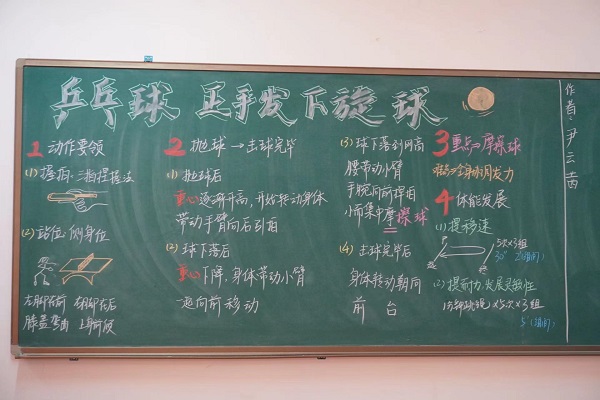 乒乓球 正手发下旋球
作者：尹云
1 动作要领
(1) 握拍：三指握拍法
(2) 站位：侧身位
左脚在前 右脚在后
膝盖弯曲 上身前倾
2 抛球→击球完毕
(1) 抛球后
重心逐渐升高，开始转动身体
带动手臂向后引拍
(2) 球下落后
重心下降，身体带动小臂
向前移动
(3) 球下落到网高
腰带动小臂
手腕向前挥拍
小而集中摩擦球
(4) 击球完毕后
身体转动朝向
前台
3 重点：摩擦球
难点：全身协调发力
4 体能发展
(1) 提移速
5次×3组
30"
(2) 提耐力，发展灵敏性
×5次×3组